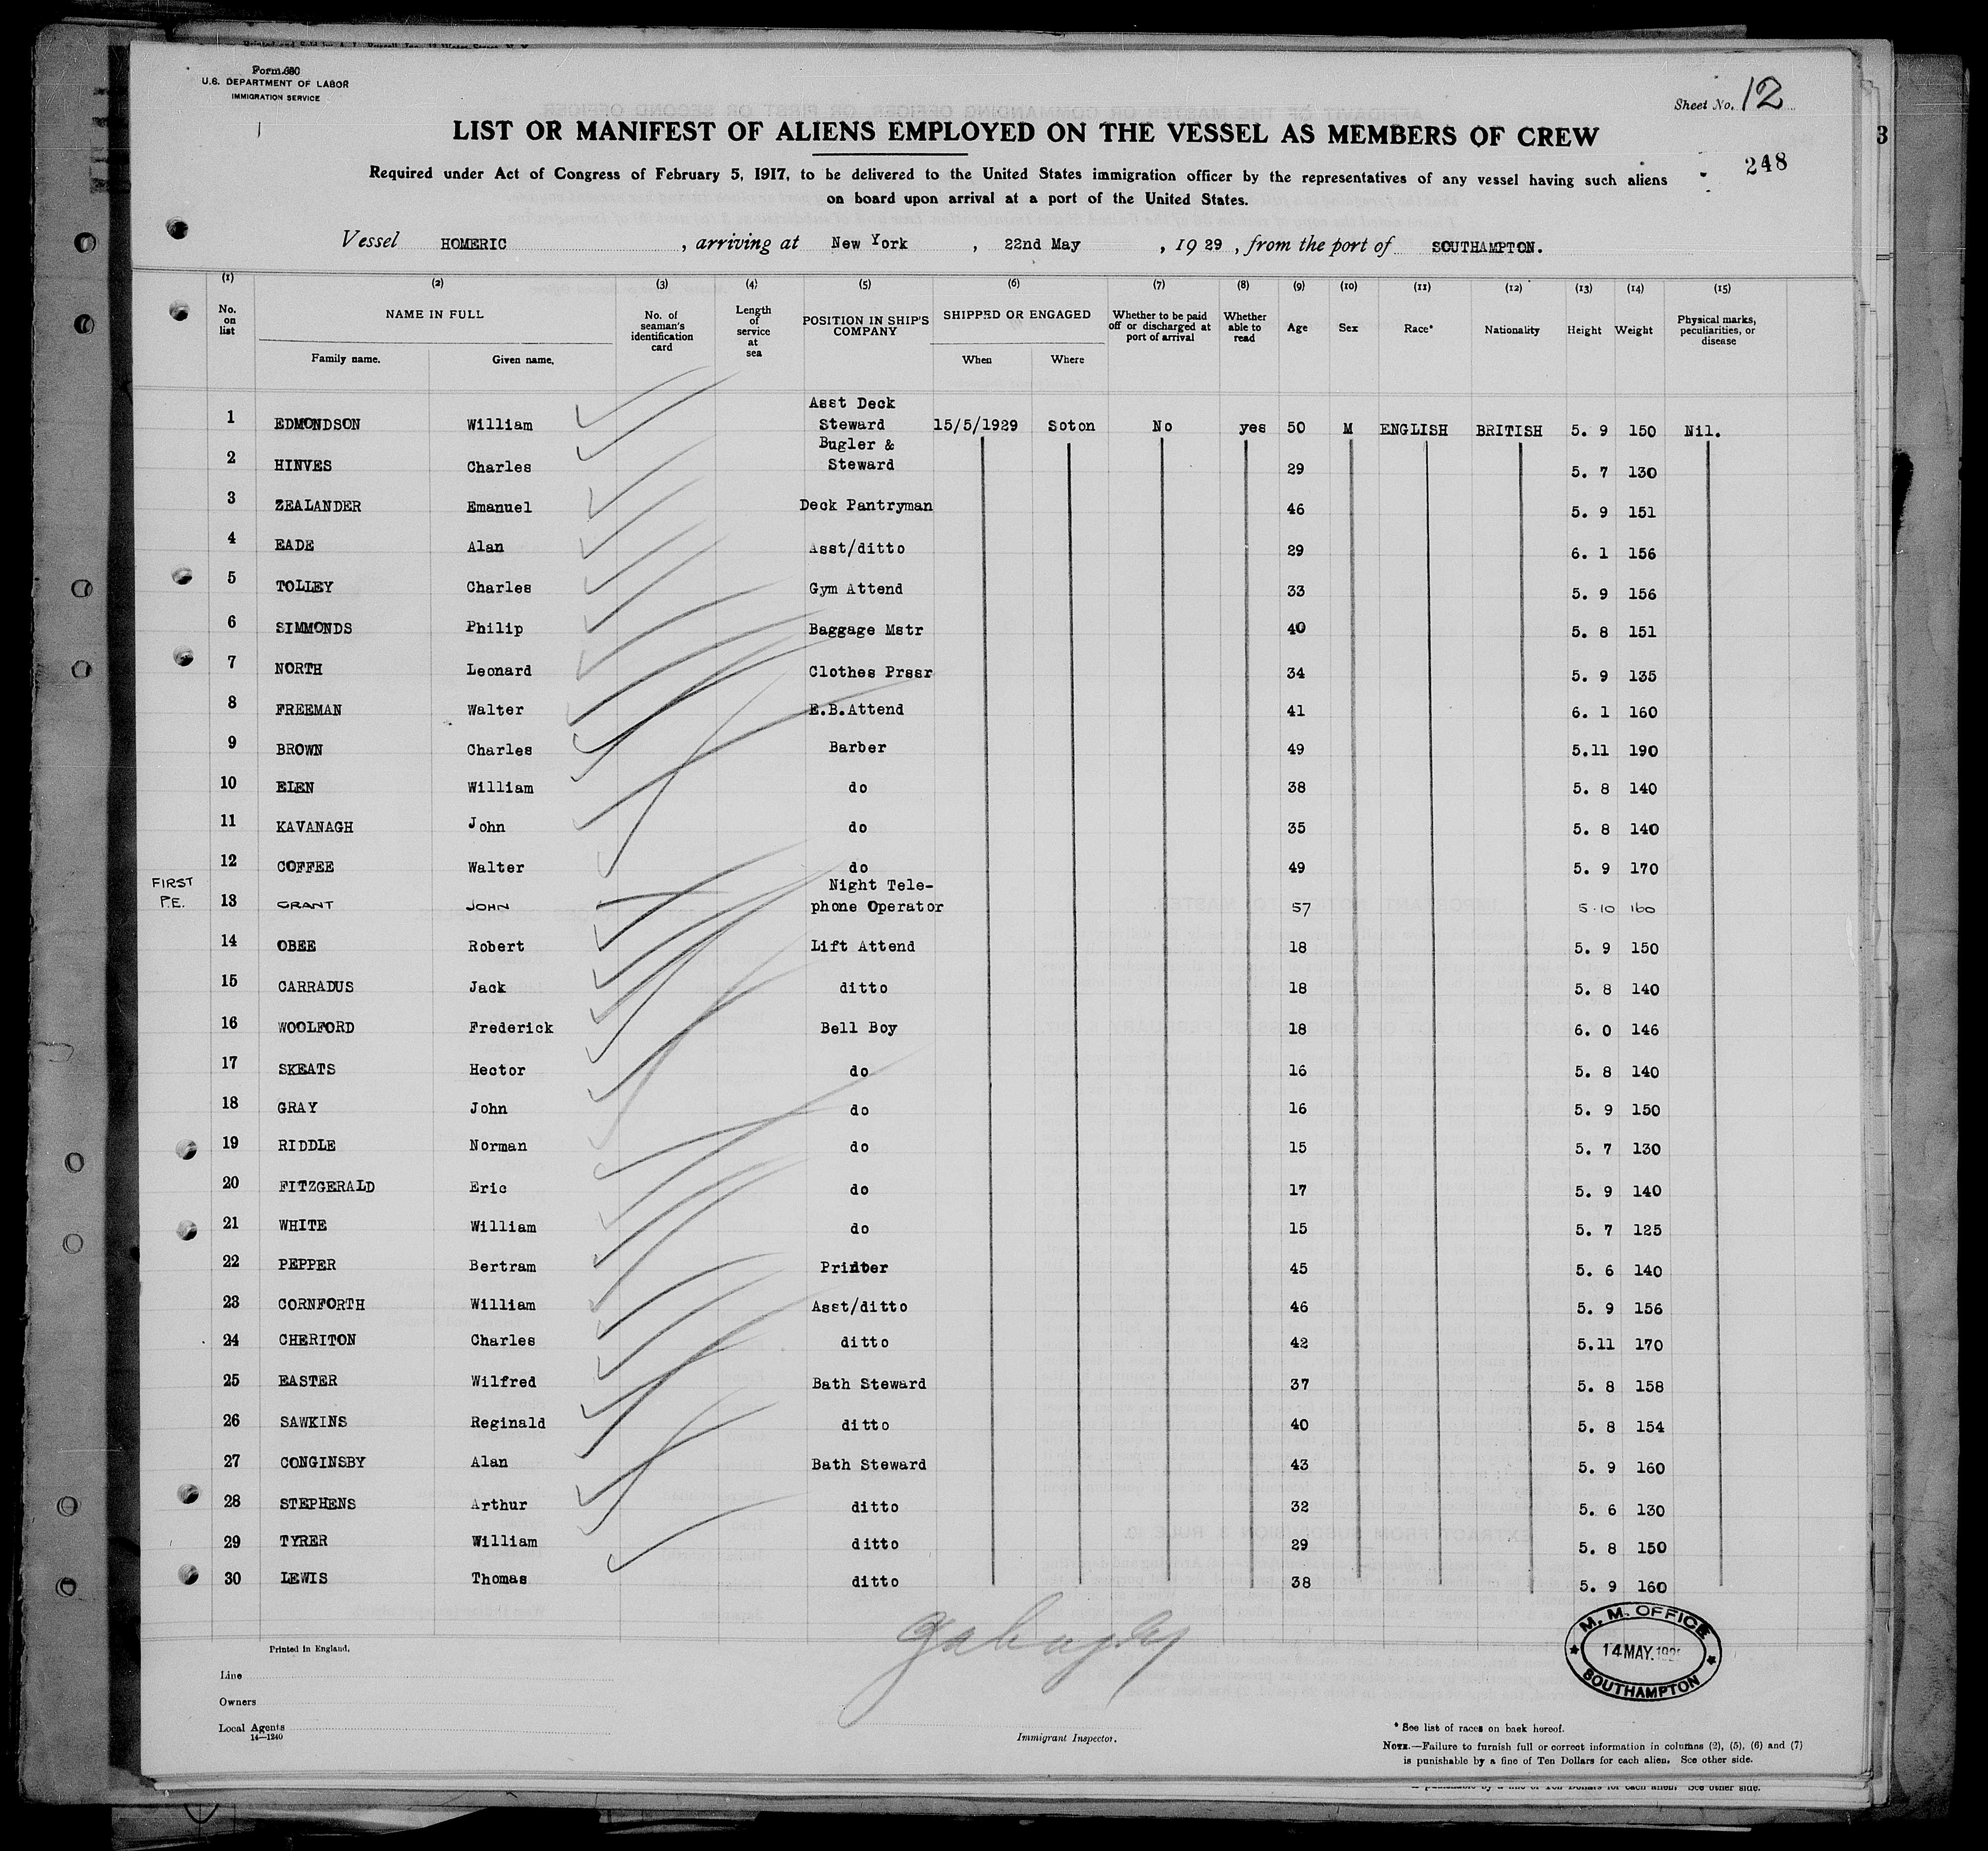 Form 680
U.S. DEPARTMENT OF LABOR
IMMIGRATION SERVICE
Sheet No. 12
LIST OR MANIFEST OF ALIENS EMPLOYED ON THE VESSEL AS MEMBERS OF CREW
248
3
Required under Act of Congress of February 5, 1917, to be delivered to the United States immigration officer by the representatives of any vessel having such aliens
on board upon arrival at a port of the United States.
Vessel HOMERIC, arriving at New York, 22nd May, 1929, from the port of SOUTHAMPTON.
(1) (2) (3) (4) (5) (6) (7) (8) (9) (10) (11) (12) (13) (14) (15)
No. on list NAME IN FULL Family name. Given name. No. of seaman's identification card Length of service at sea POSITION IN SHIP'S COMPANY SHIPPED OR ENGAGED When Where Whether to be paid off or discharged at port of arrival Whether able to read Age Sex Race* Nationality Height Weight Physical marks, peculiarities, or disease
1 EDMONDSON William Asst Deck Steward 15/5/1929 Soton No yes 50 M ENGLISH BRITISH 5. 9 150 Nil.
2 HINVES Charles Bugler & Steward 29 5. 7 130
3 ZEALANDER Emanuel Deck Pantryman 46 5. 9 151
4 EADE Alan Asst/ditto 29 6. 1 156
5 TOLLEY Charles Gym Attend 33 5. 9 156
6 SIMMONDS Philip Baggage Mstr 40 5. 8 151
7 NORTH Leonard Clothes Prssr 34 5. 9 135
8 FREEMAN Walter E.B.Attend 41 6. 1 160
9 BROWN Charles Barber 49 5.11 190
10 ELEN William do 38 5. 8 140
11 KAVANAGH John do 35 5. 8 140
12 COFFEE Walter do 49 5. 9 170
FIRST P.E. 13 GRANT JOHN Night Tele-phone Operator 57 5.10 160
14 OBEE Robert Lift Attend 18 5. 9 150
15 CARRADUS Jack ditto 18 5. 8 140
16 WOOLFORD Frederick Bell Boy 18 6. 0 146
17 SKEATS Hector do 16 5. 8 140
18 GRAY John do 16 5. 9 150
19 RIDDLE Norman do 15 5. 7 130
20 FITZGERALD Eric do 17 5. 9 140
21 WHITE William do 15 5. 7 125
22 PEPPER Bertram Printer 45 5. 6 140
23 CORNFORTH William Asst/ditto 46 5. 9 156
24 CHERITON Charles ditto 42 5.11 170
25 EASTER Wilfred Bath Steward 37 5. 8 158
26 SAWKINS Reginald ditto 40 5. 8 154
27 CONGINSBY Alan Bath Steward 43 5. 9 160
28 STEPHENS Arthur ditto 32 5. 6 130
29 TYRER William ditto 29 5. 8 150
30 LEWIS Thomas ditto 38 5. 9 160
Printed in England.
Line
Owners
Local Agents
14—1240
Immigrant Inspector.
M. M. OFFICE
14 MAY.
SOUTHAMPTON
* See list of races on back hereof.
NOTE.—Failure to furnish full or correct information in columns (2), (5), (6) and (7)
is punishable by a fine of Ten Dollars for each alien. See other side.
is punishable by a fine of Ten Dollars for each alien. See other side.